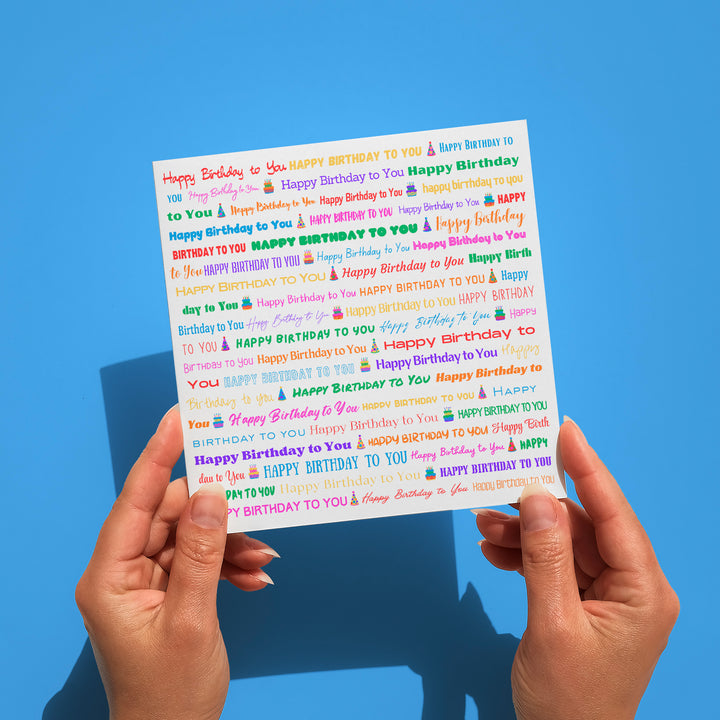 Happy Birthday to You HAPPY BIRTHDAY TO YOU Happy Birthday to
You Happy Birthday to You Happy Birthday to You Happy Birthday
to You Happy Birthday to You Happy Birthday to You happy birthday to you
Happy Birthday to You HAPPY BIRTHDAY TO YOU Happy Birthday to You HAPPY
BIRTHDAY TO YOU HAPPY BIRTHDAY TO YOU Happy Birthday
to You HAPPY BIRTHDAY TO YOU Happy Birthday to You Happy Birthday to You
Happy Birthday to You Happy Birthday to You Happy Birth
day to You Happy Birthday to You HAPPY BIRTHDAY TO YOU Happy
Birthday to You Happy Birthday to You Happy Birthday to You HAPPY BIRTHDAY
TO YOU HAPPY BIRTHDAY TO YOU Happy Birthday To You Happy
Birthday to You Happy Birthday to You Happy Birthday to
You HAPPY BIRTHDAY TO YOU Happy Birthday to You Happy
Birthday to You Happy Birthday to You Happy Birthday to
You Happy Birthday to You HAPPY BIRTHDAY TO YOU Happy
BIRTHDAY TO YOU Happy Birthday to You HAPPY BIRTHDAY TO YOU
Happy Birthday to You HAPPY BIRTHDAY TO YOU Happy Birth
day to You HAPPY BIRTHDAY TO YOU Happy Birthday to You HAPPY
DAY TO YOU Happy Birthday to You HAPPY BIRTHDAY TO YOU
PY BIRTHDAY TO YOU Happy Birthday to You Happy Birthday to You